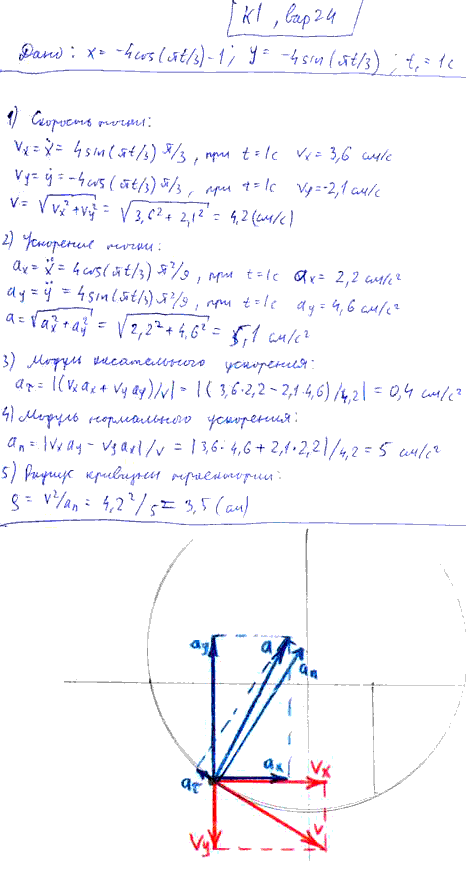 К1, вар 24
Дано: x = -4cos(πt/3)-1; y = -4sin(πt/3); t₁ = 1c
1) Скорость точки:
Vx = ẋ = 4sin(πt/3) π/3, при t=1c Vx = 3,6 см/с
Vy = ẏ = -4cos(πt/3) π/3, при t=1c Vy=-2,1 см/с
V = √(Vx² + Vy²) = √(3,6² + 2,1²) = 4,2 (см/с)
2) Ускорение точки:
ax = ẍ = 4cos(πt/3) π²/9, при t=1c ax = 2,2 см/с²
ay = ÿ = 4sin(πt/3) π²/9, при t=1c ay = 4,6 см/с²
a = √(ax² + ay²) = √(2,2² + 4,6²) = 5,1 см/с²
3) Модуль касательного ускорения:
aτ = |(Vx ax + Vy ay)/V| = |(3,6·2,2 - 2,1·4,6)/4,2| = 0,4 см/с²
4) Модуль нормального ускорения:
an = |Vx ay - Vy ax|/V = |3,6·4,6 + 2,1·2,2|/4,2 = 5 см/с²
5) Радиус кривизны траектории:
ρ = V²/an = 4,2²/5 = 3,5 (см)
ay
a
an
ax
aτ
Vx
Vy
V